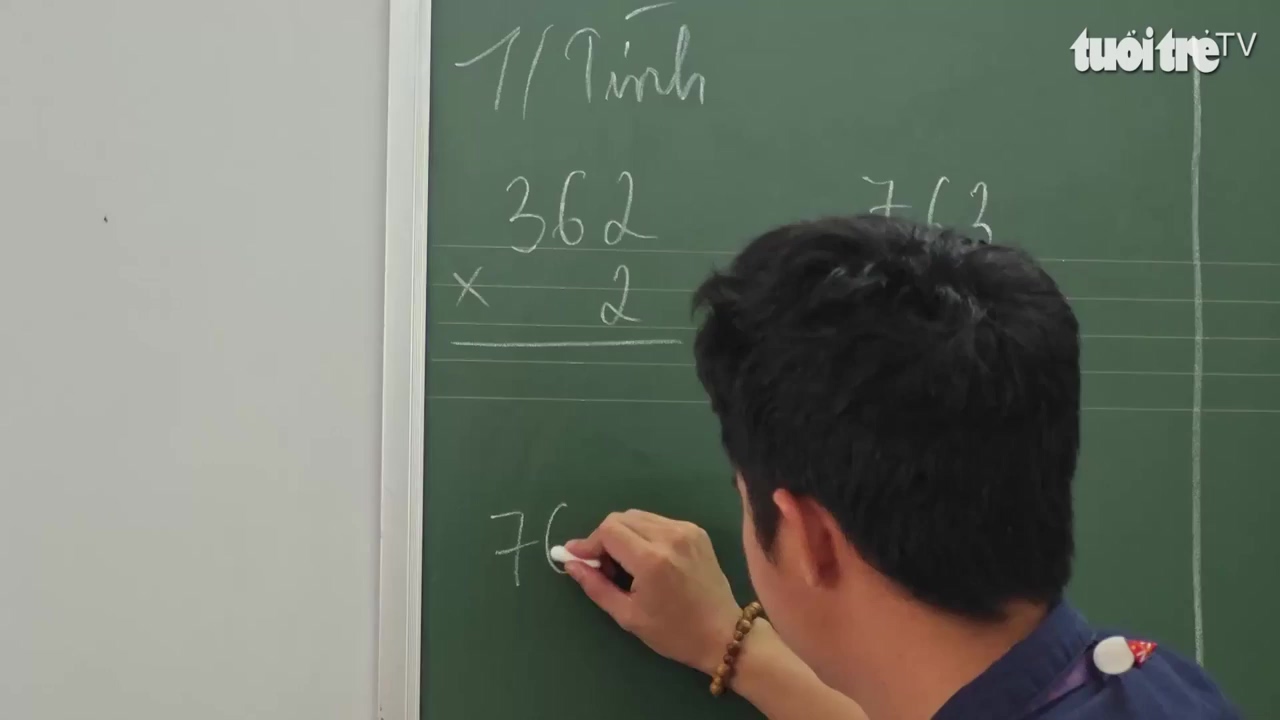 tuổi trẻ TV
1/ Tính
362 763
× 2
76